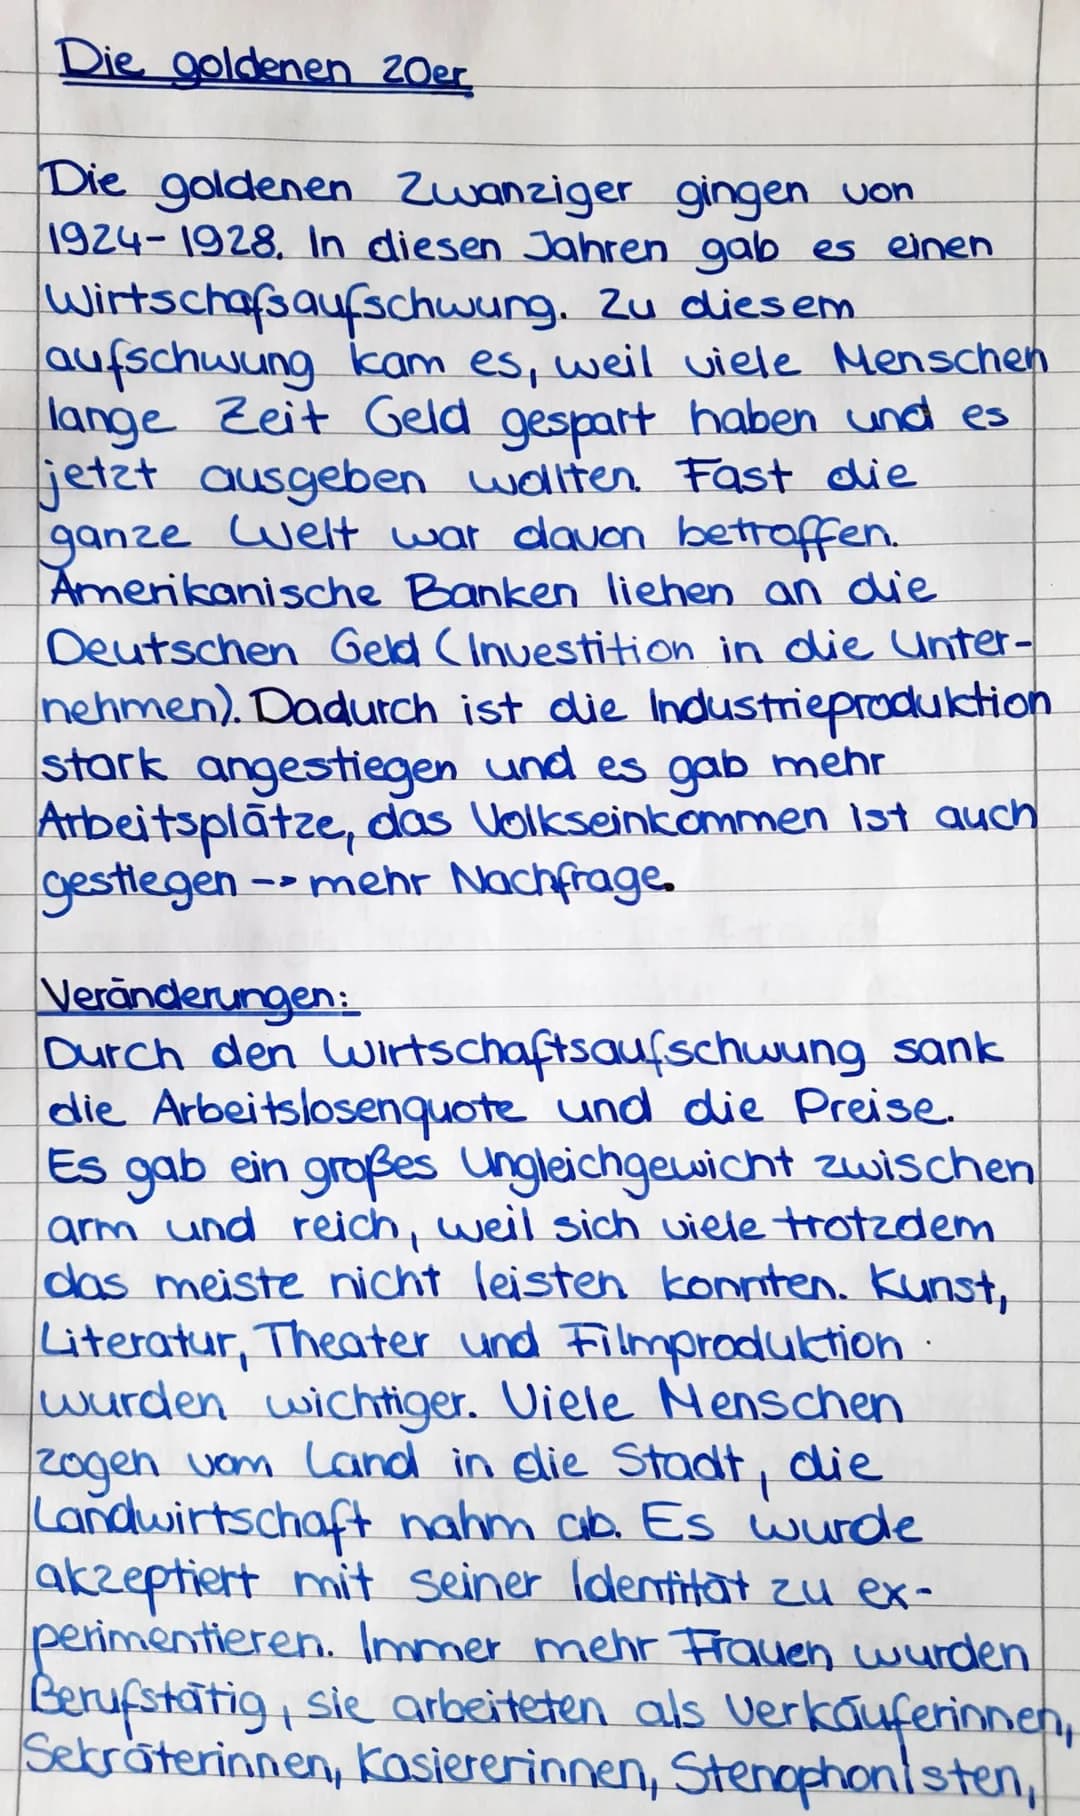 Die goldenen 20er
Die goldenen Zwanziger gingen von
1924-1928. In diesen Jahren gab es einen
Wirtschafsaufschwung. Zu diesem
aufschwung kam es, weil viele Menschen
lange Zeit Geld gespart haben und es
jetzt ausgeben wollten. Fast die
ganze Welt war davon betroffen.
Amerikanische Banken liehen an die
Deutschen Geld (Investition in die Unter-
nehmen). Dadurch ist die Industrieproduktion
stark angestiegen und es gab mehr
Arbeitsplätze, das Volkseinkommen ist auch
gestiegen --> mehr Nachfrage.
Veränderungen:
Durch den Wirtschaftsaufschwung sank
die Arbeitslosenquote und die Preise.
Es gab ein großes Ungleichgewicht zwischen
arm und reich, weil sich viele trotzdem
das meiste nicht leisten konnten. Kunst,
Literatur, Theater und Filmproduktion
wurden wichtiger. Viele Menschen
zogen vom Land in die Stadt, die
Landwirtschaft nahm ab. Es wurde
akzeptiert mit seiner Identität zu ex-
perimentieren. Immer mehr Frauen wurden
Berufstätig, sie arbeiteten als Verkäuferinnen,
Sekräterinnen, Kasiererinnen, Stenophonisten,